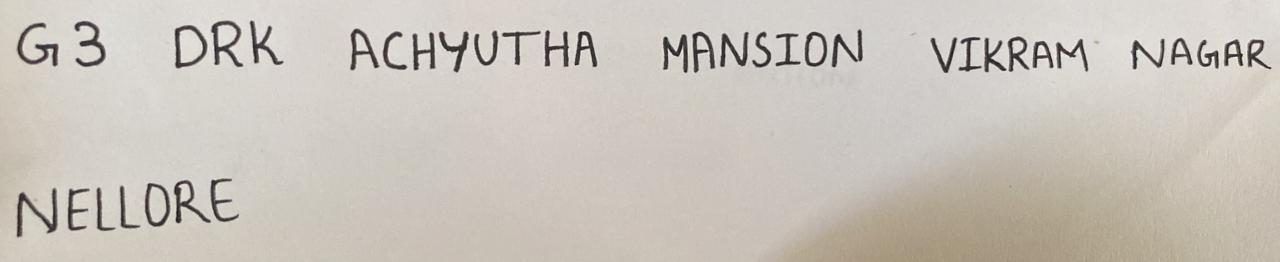 G3 DRK ACHYUTHA MANSION VIKRAM NAGAR
NELLORE